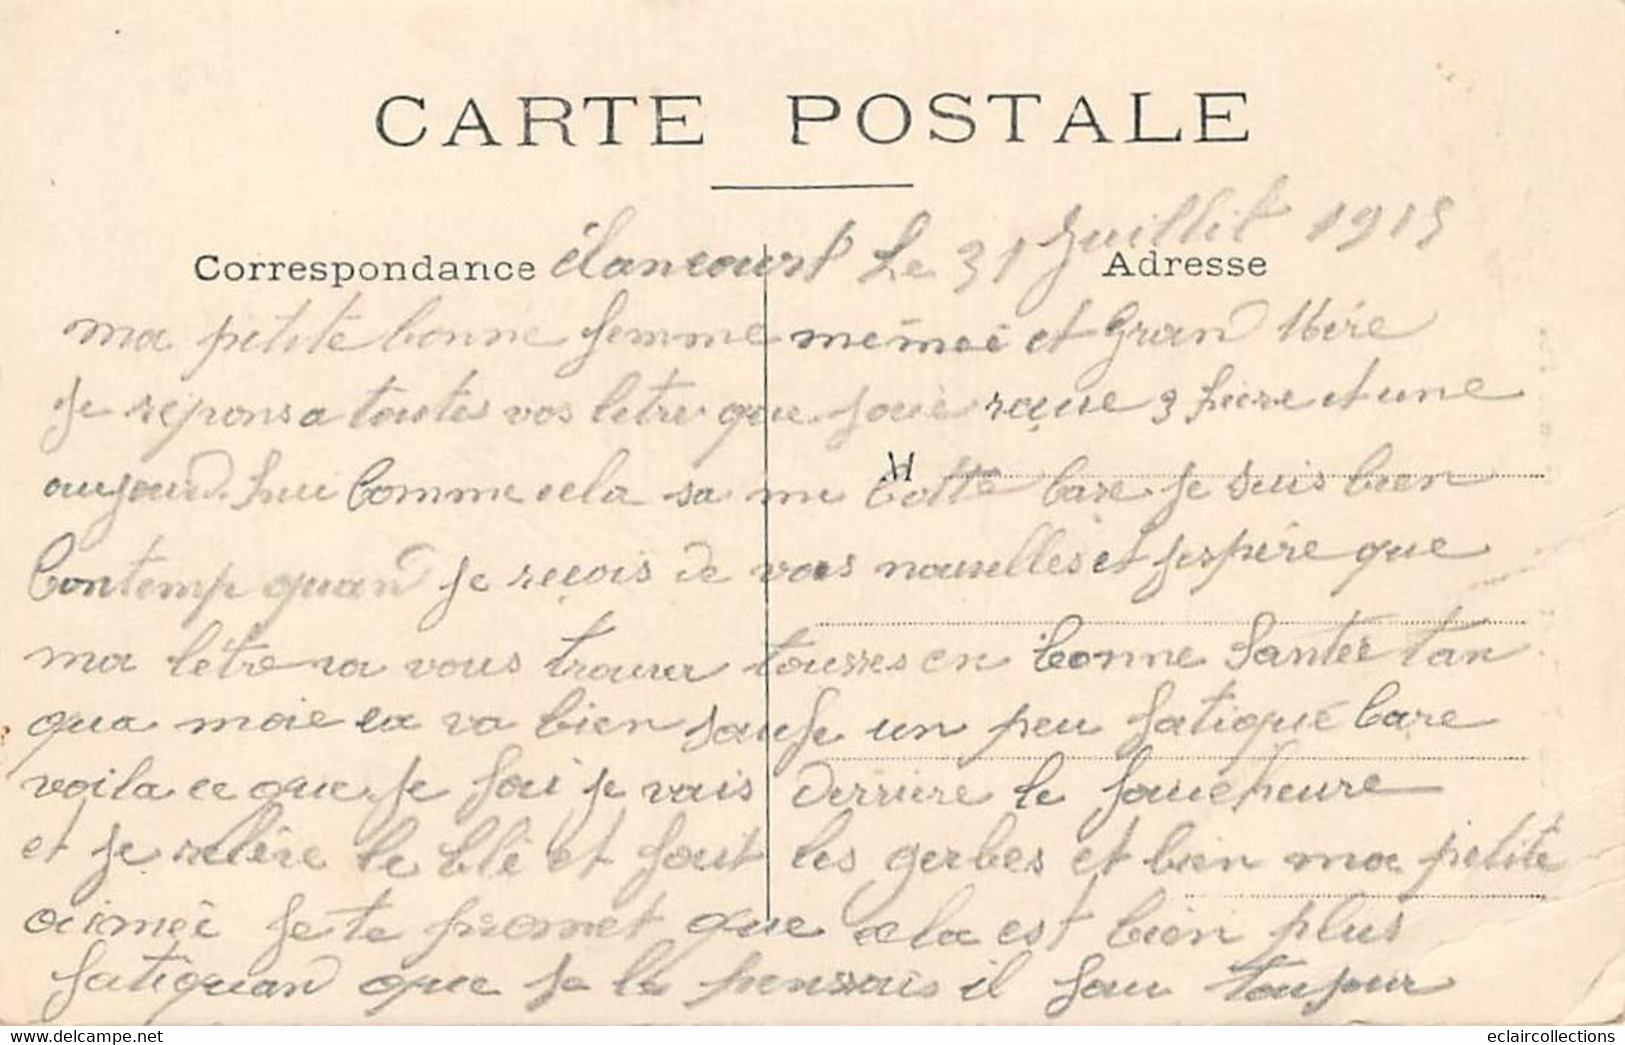 CARTE POSTALE
Correspondance élancourt Le 31 Juillit 1915
Adresse
ma petite bonne femme et Gran Mère
Je repons a toutes vos letre que reçue 3 hiere et une
aujourd hui Comme cela sa me botte Care je suis bien
M
Contemp quand je reçois de vos nouvelles et jespère que
ma letre va vous trouver tousses en bonne Santer tan
qua moie ca va bien saufe un peu fatigué Care
voila ce que je fai je vais derriere le foucheure
et je relère le blé et fait les gerbes et bien ma petite
aimeé je te promet que cela est bien plus
fatiguan que je le pensais il fau toujour
www.delcampe.net
eclaircollections